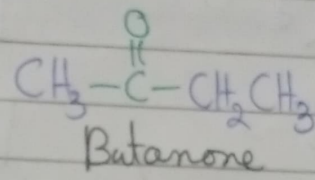 O
||
CH₃–C–CH₂CH₃
Butanone